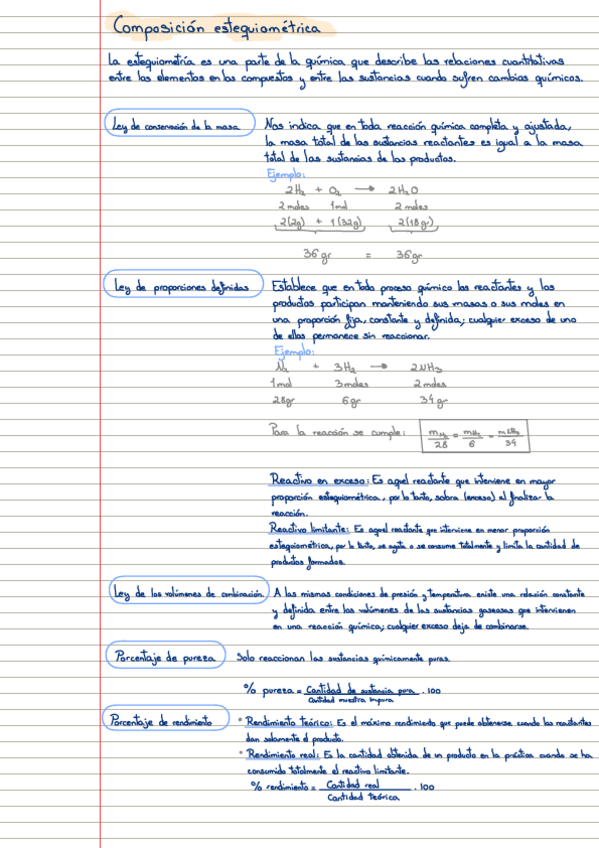 Composición estequiométrica
La estequiometría es una parte de la química que describe las relaciones cuantitativas
entre los elementos en los compuestos y entre las sustancias cuando sufren cambios químicos.
Ley de conservación de la masa
Nos indica que en toda reacción química completa y ajustada,
la masa total de las sustancias reactantes es igual a la masa
total de las sustancias de los productos.
Ejemplo:
2H₂ + O₂ → 2H₂O
2 moles 1mol 2 moles
2(2g) + 1(32g) 2(18gr)
36gr = 36gr
Ley de proporciones definidas
Establece que en todo proceso químico los reactantes y los
productos participan manteniendo sus masas o sus moles en
una proporción fija, constante y definida; cualquier exceso de uno
de ellos permanece sin reaccionar.
Ejemplo:
N₂ + 3H₂ → 2NH₃
1mol 3moles 2moles
28gr 6gr 34gr
Para la reacción se cumple: m_N₂/28 = m_H₂/6 = m_NH₃/34
Reactivo en exceso: Es aquel reactante que interviene en mayor
proporción estequiométrica, por lo tanto, sobra (exceso) al finalizar la
reacción.
Reactivo limitante: Es aquel reactante que interviene en menor proporción
estequiométrica, por lo tanto, se agota o se consume totalmente y limita la cantidad de
productos formados.
Ley de los volúmenes de combinación.
A las mismas condiciones de presión y temperatura existe una relación constante
y definida entre los volúmenes de las sustancias gaseosas que intervienen
en una reacción química; cualquier exceso deja de combinarse.
Porcentaje de pureza
Solo reaccionan las sustancias químicamente puras.
% pureza = Cantidad de sustancia pura / Cantidad muestra impura . 100
Porcentaje de rendimiento
* Rendimiento teórico: Es el máximo rendimiento que puede obtenerse cuando los reactantes
dan solamente el producto.
* Rendimiento real: Es la cantidad obtenida de un producto en la práctica cuando se ha
consumido totalmente el reactivo limitante.
% rendimiento = Cantidad real / Cantidad teórica . 100